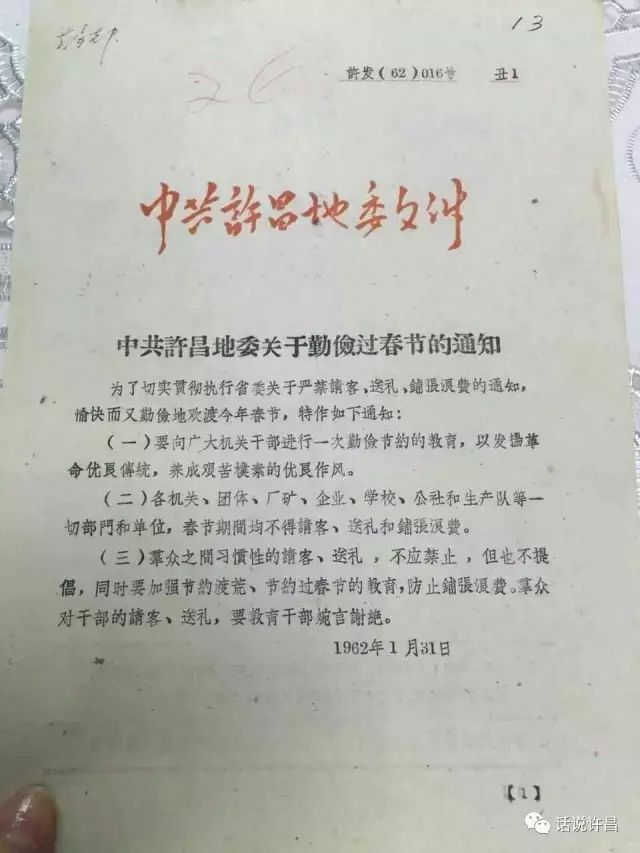 13
許发(62)016号 丑1
26
中共許昌地委文件
中共許昌地委关于勤儉过春节的通知
为了切实貫彻执行省委关于严禁請客、送礼、鋪張浪費的通知，
愉快而又勤儉地欢渡今年春节，特作如下通知：
（一）要向广大机关干部进行一次勤儉节約的教育，以发揚革
命优良傳統，养成艰苦樸素的优良作风。
（二）各机关、团体、厂矿、企业、学校、公社和生产队等一
切部門和单位，春节期間均不得請客、送礼和鋪張浪費。
（三）羣众之間习慣性的請客、送礼，不应禁止，但也不提
倡，同时要加强节約渡荒、节約过春节的教育，防止鋪張浪費。羣众
对干部的請客、送礼，要教育干部婉言謝絕。
1962年1月31日
【1】
话说许昌